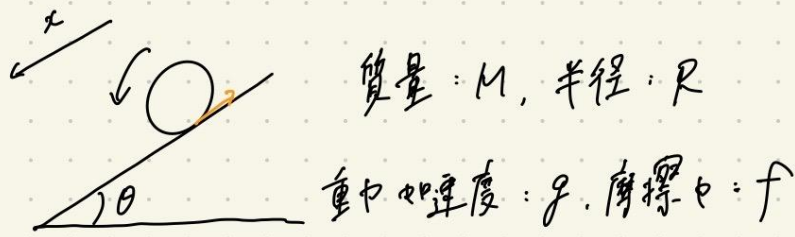 x
質量：M, 半径：R
θ
重力加速度：g, 摩擦力：f